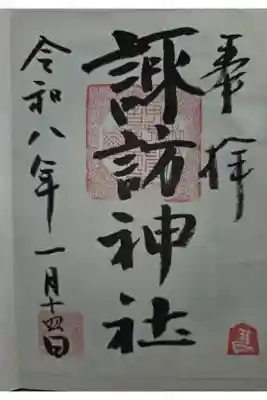 奉拝
諏訪神社
令和八年一月十四日